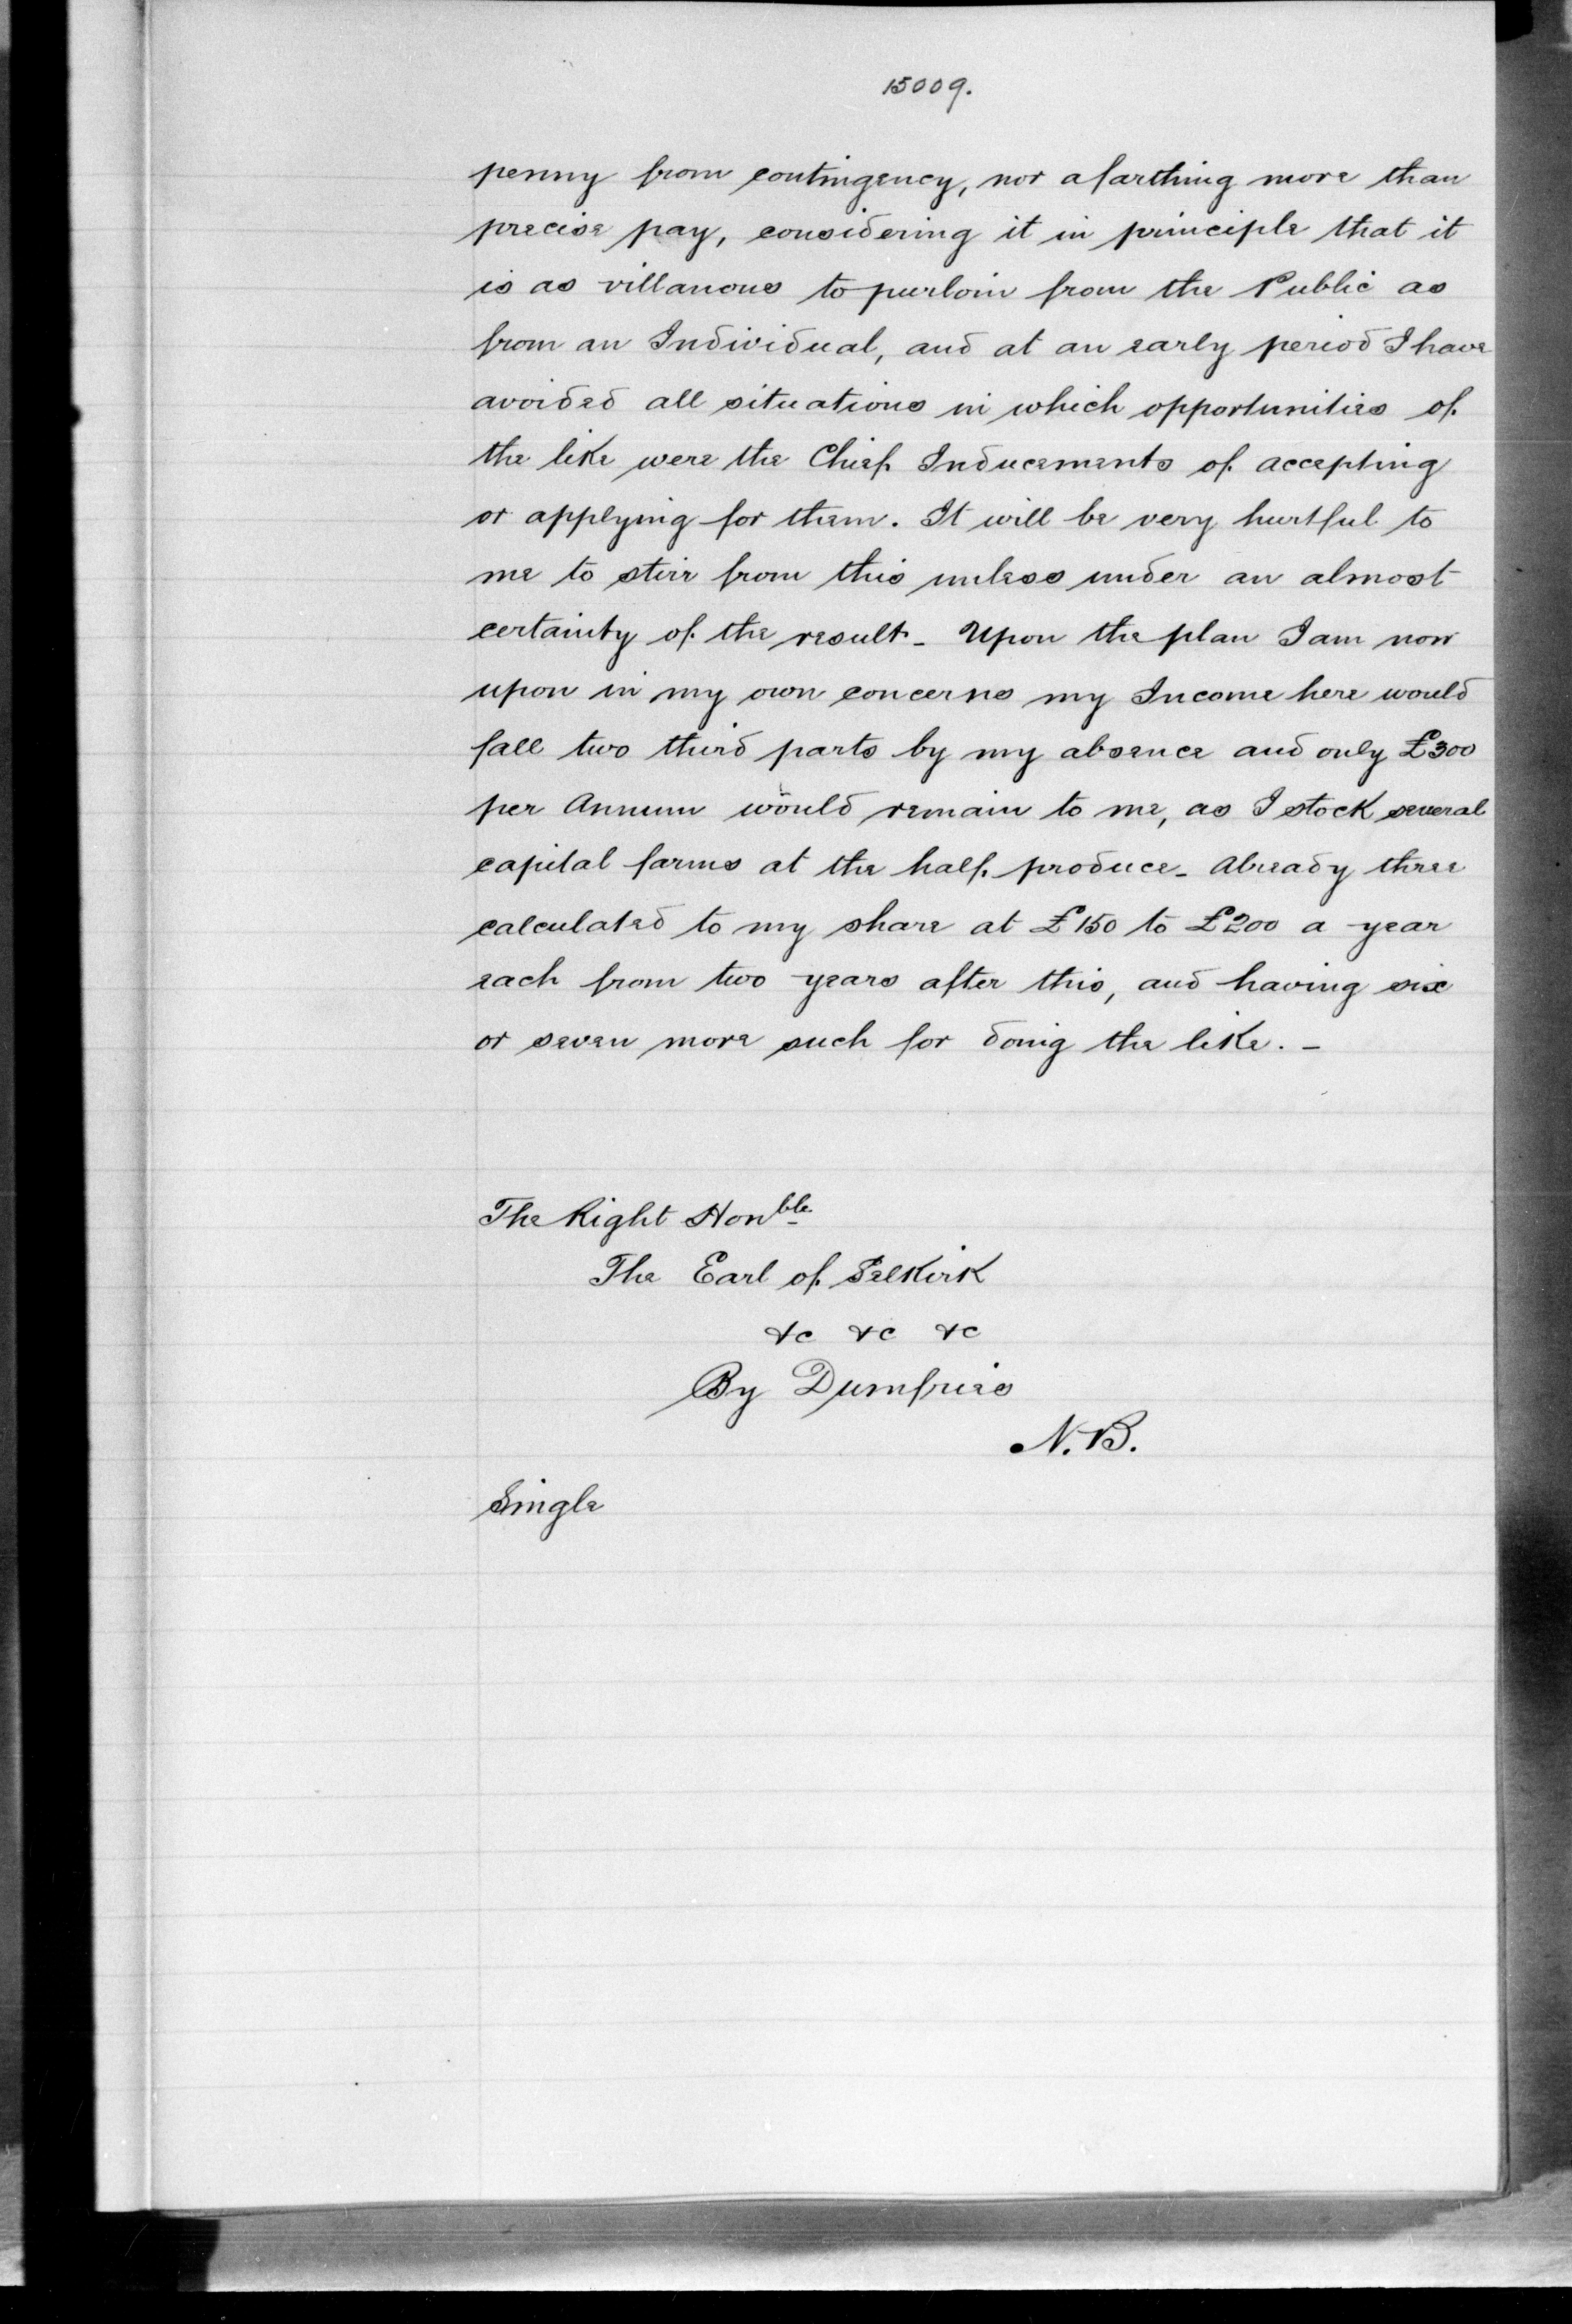 15009.
penny from contingency, nor a farthing more than
precise pay, considering it in principle that it
is as villanous to purloin from the Public as
from an Individual, and at an early period I have
avoided all situations in which opportunities of
the like were the Chief Inducements of accepting
or applying for them. It will be very hurtful to
me to stirr from this unless under an almost
certainty of the result - Upon the plan I am now
upon in my own concerns my Income here would
fall two third parts by my absence and only £300
per Annum would remain to me, as I stock several
capital farms at the half produce - Already three
calculated to my share at £150 to £200 a year
each from two years after this, and having six
or seven more such for doing the like. -
The Right Honble
The Earl of Selkirk
&c &c &c
By Dumfries
N.B.
Single